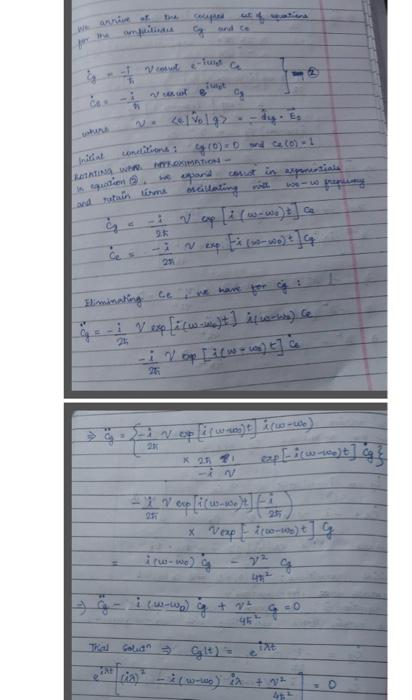 We arrive at the coupled set of equations
for the amplitudes Cg and Ce
Ċg = -i/ħ V cosωt e^-iω₀t Ce
Ċe = -i/ħ V cosωt e^iω₀t Cg } - ②
where V = <e|V̂₀|g> = -d⃗eg · E⃗₀
Initial conditions: Cg(0)=0 and Ce(0)=1
ROTATING WAVE APPROXIMATION -
in equation ②, we expand cosωt in exponentials
and retain terms oscillating with ω₀-ω frequency
Ċg = -i/2ħ V exp[i(ω-ω₀)t] Ce
Ċe = -i/2ħ V exp[-i(ω-ω₀)t] Cg
Eliminating Ce, we have for Cg :
C̈g = -i/2ħ V exp[i(ω-ω₀)t] i(ω-ω₀) Ce
-i/2ħ V exp[i(ω-ω₀)t] Ċe
⇒ C̈g = {-i/2ħ V exp[i(ω-ω₀)t] i(ω-ω₀)
× 2ħ/-i 1/V exp[-i(ω-ω₀)t] Ċg}
-i/2ħ V exp[i(ω-ω₀)t] (-i/2ħ)
× V exp[-i(ω-ω₀)t] Cg
= i(ω-ω₀) Ċg - V²/4ħ² Cg
⇒ C̈g - i(ω-ω₀) Ċg + V²/4ħ² Cg = 0
Trial Solutn ⇒ Cg(t) = e^iλt
e^iλt [(iλ)² - i(ω-ω₀) iλ + V²/4ħ²] = 0